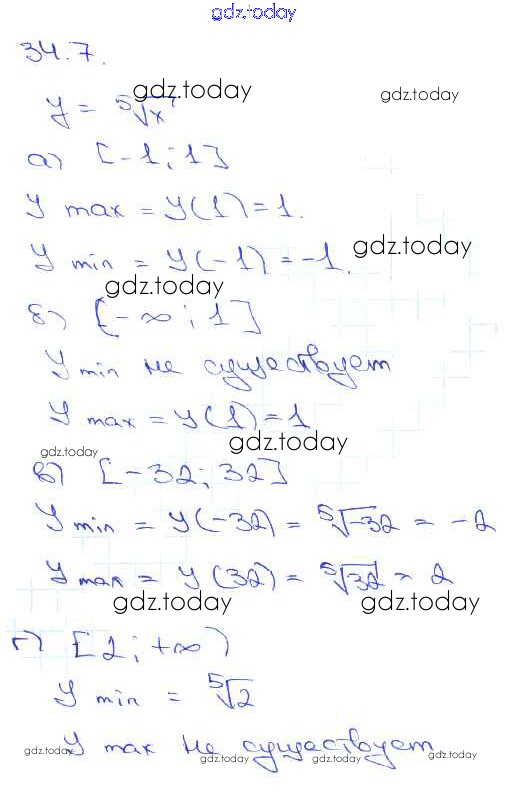 gdz.today
34.7.
gdz.today gdz.today
y = ⁵√x
а) [-1; 1]
y max = y(1) = 1.
y min = y(-1) = -1.
gdz.today
gdz.today
б) [-∞; 1]
y min не существует
y max = y(1) = 1
gdz.today
gdz.today
в) [-32; 32]
y min = y(-32) = ⁵√-32 = -2
y max = y(32) = ⁵√32 = 2
gdz.today gdz.today
г) [2; +∞)
y min = ⁵√2
y max не существует
gdz.today gdz.today gdz.today gdz.today